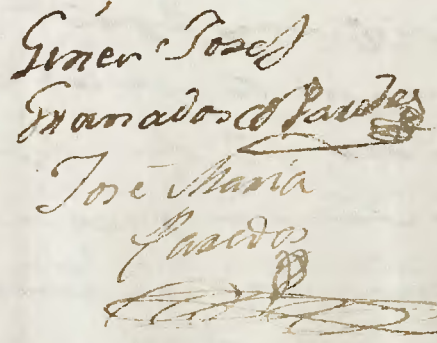 Giner Josef
Granados Paredes
José María
Paredes